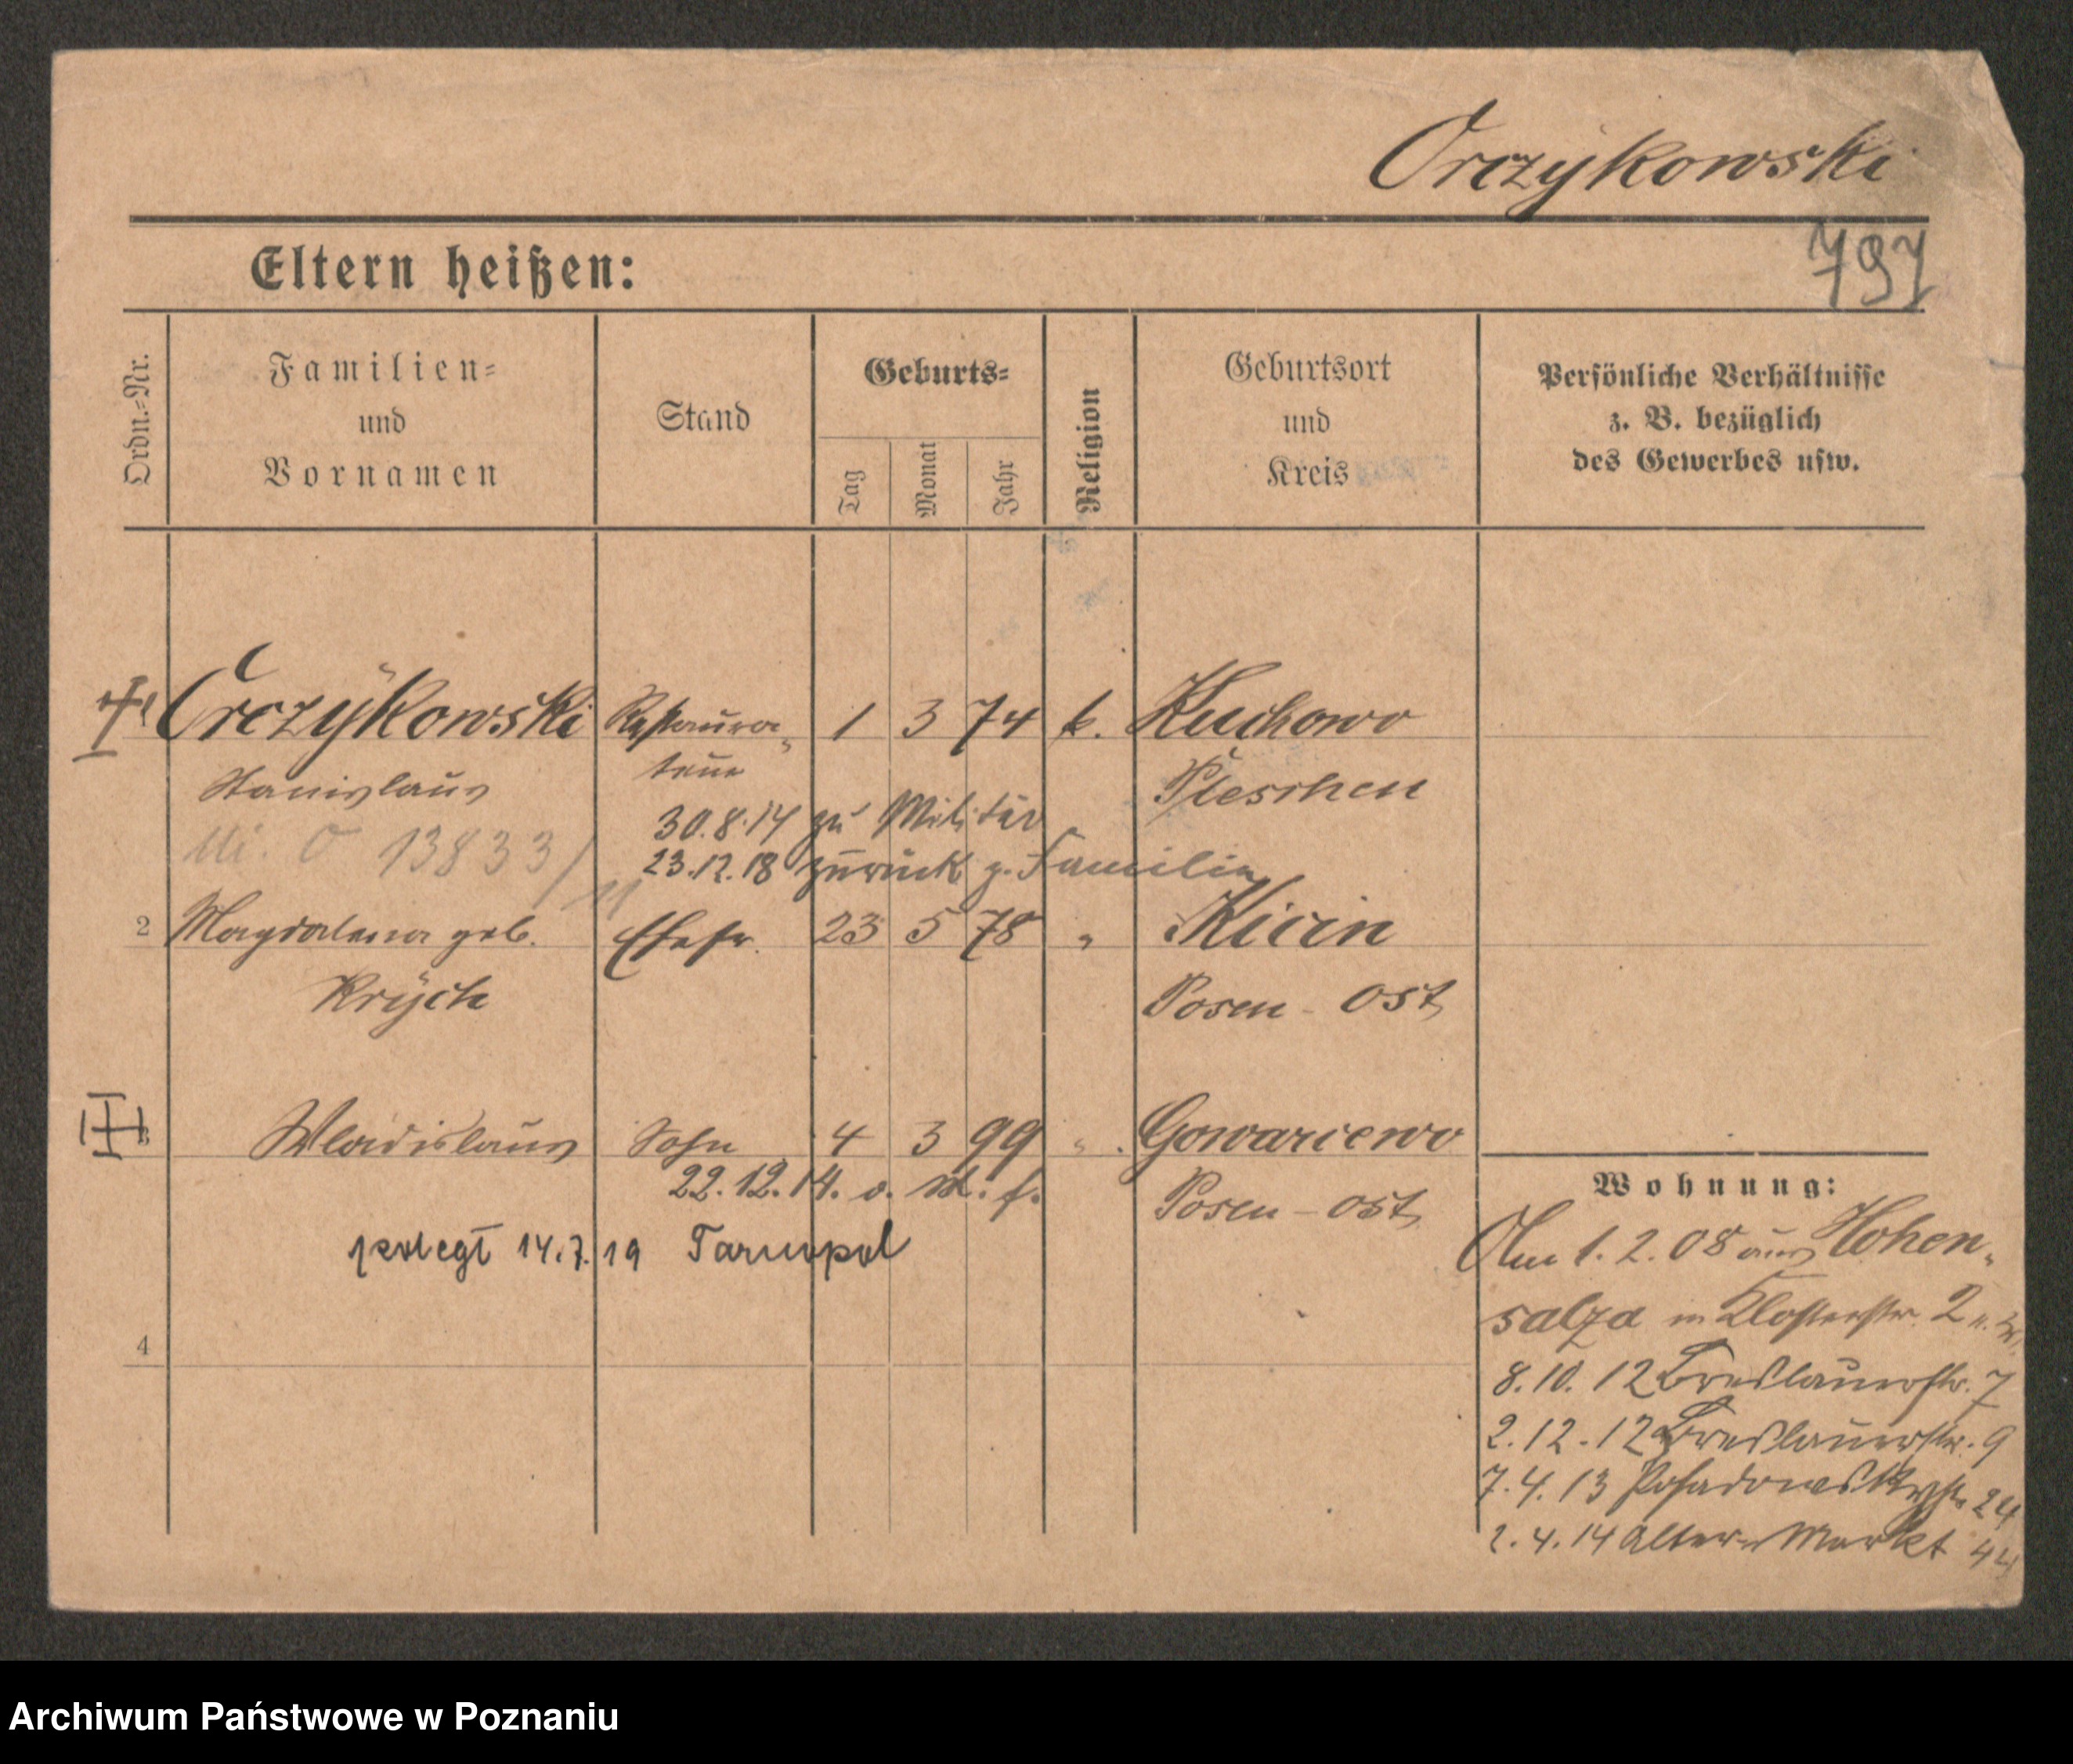 Orczykowski
797
Eltern heißen:
Ordn.-Nr.
Familien-
und
Vornamen
Stand
Geburts-
Tag
Monat
Jahr
Religion
Geburtsort
und
Kreis
Persönliche Verhältnisse
z. B. bezüglich
des Gewerbes usw.
Orczykowski Restaura- 1 3 74 k. Kuchowo
Stanislaus teur Pleschen
30.8.14 zu Militär
13833/11
23.12.18 zurück z. Familie
2 Magdalena geb. Ehefr. 23 5 78 " Kicin
Krÿch Posen - Ost
3 Wladislaus Sohn 4 3 99 " Gowarzewo
22.12.14. v. M. f. Posen - Ost
14.7.19 Tarnopol
4
Wohnung:
Am 1.2.08 aus Hohen-
salza in Klosterstr. 2
8.10.12 Breslauerstr. 7
2.12.12 Breslauerstr. 9
7.4.13 Posadowskystr 24
2.4.14 Alter Markt 44
Archiwum Państwowe w Poznaniu